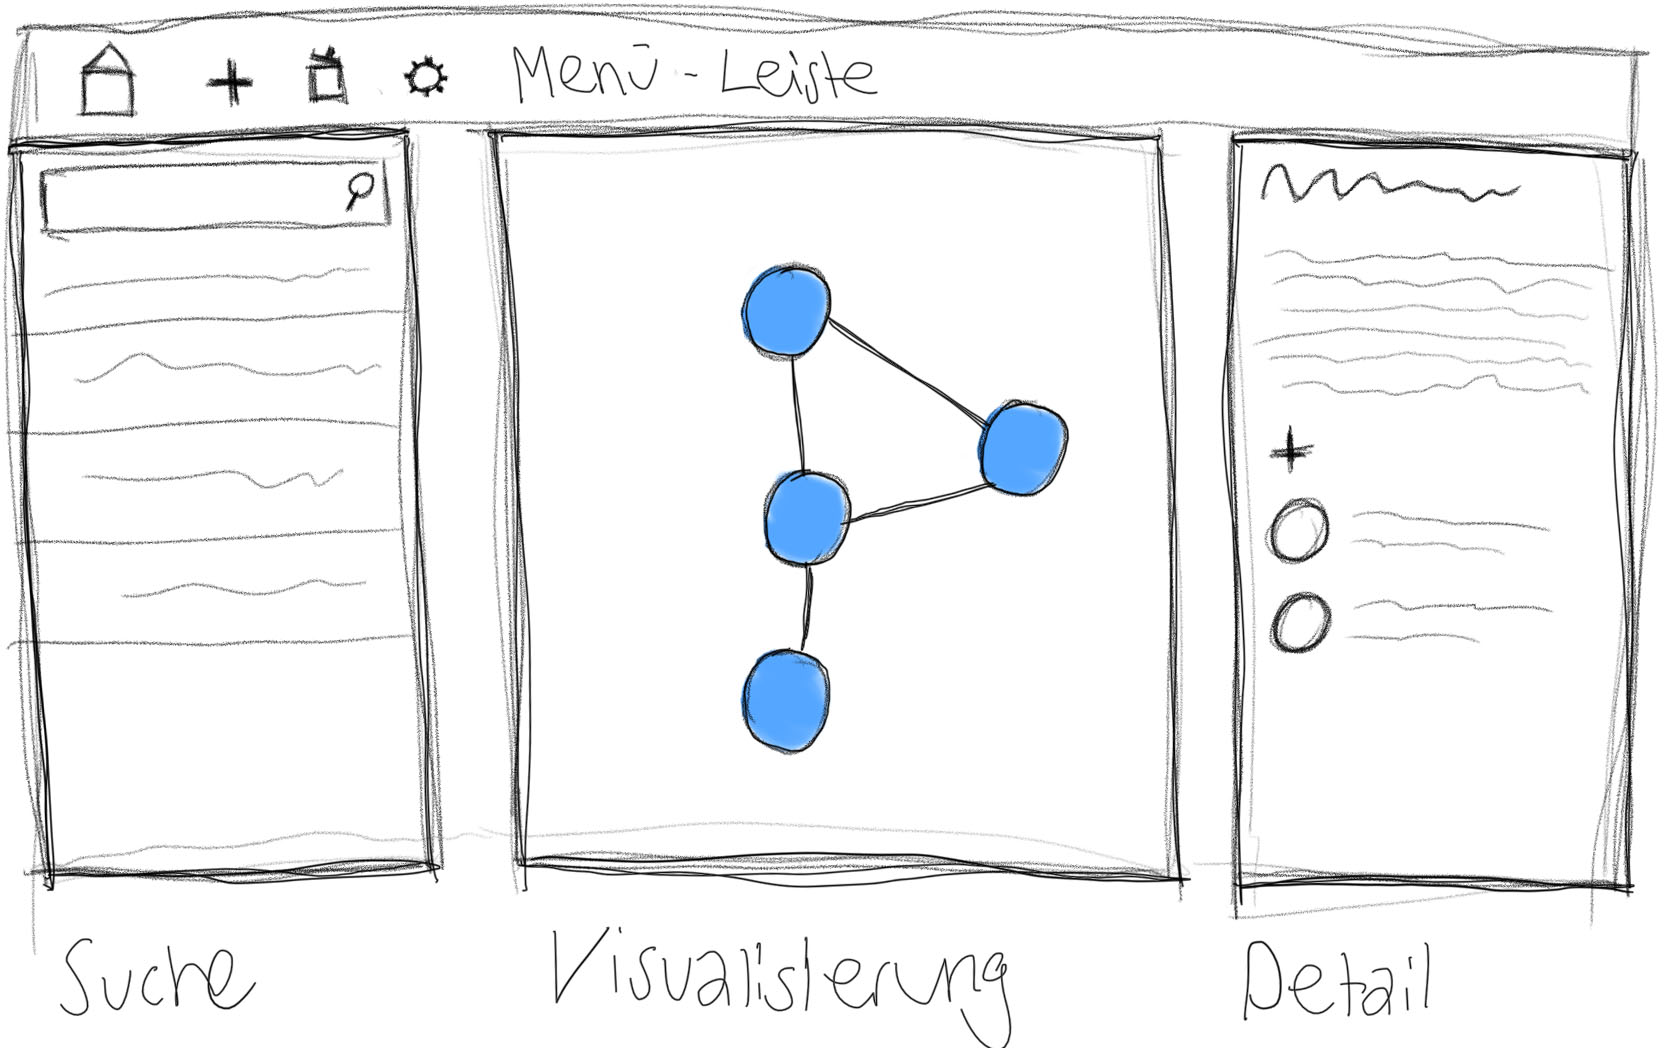 Menü-Leiste
Suche
Visualisierung
Detail